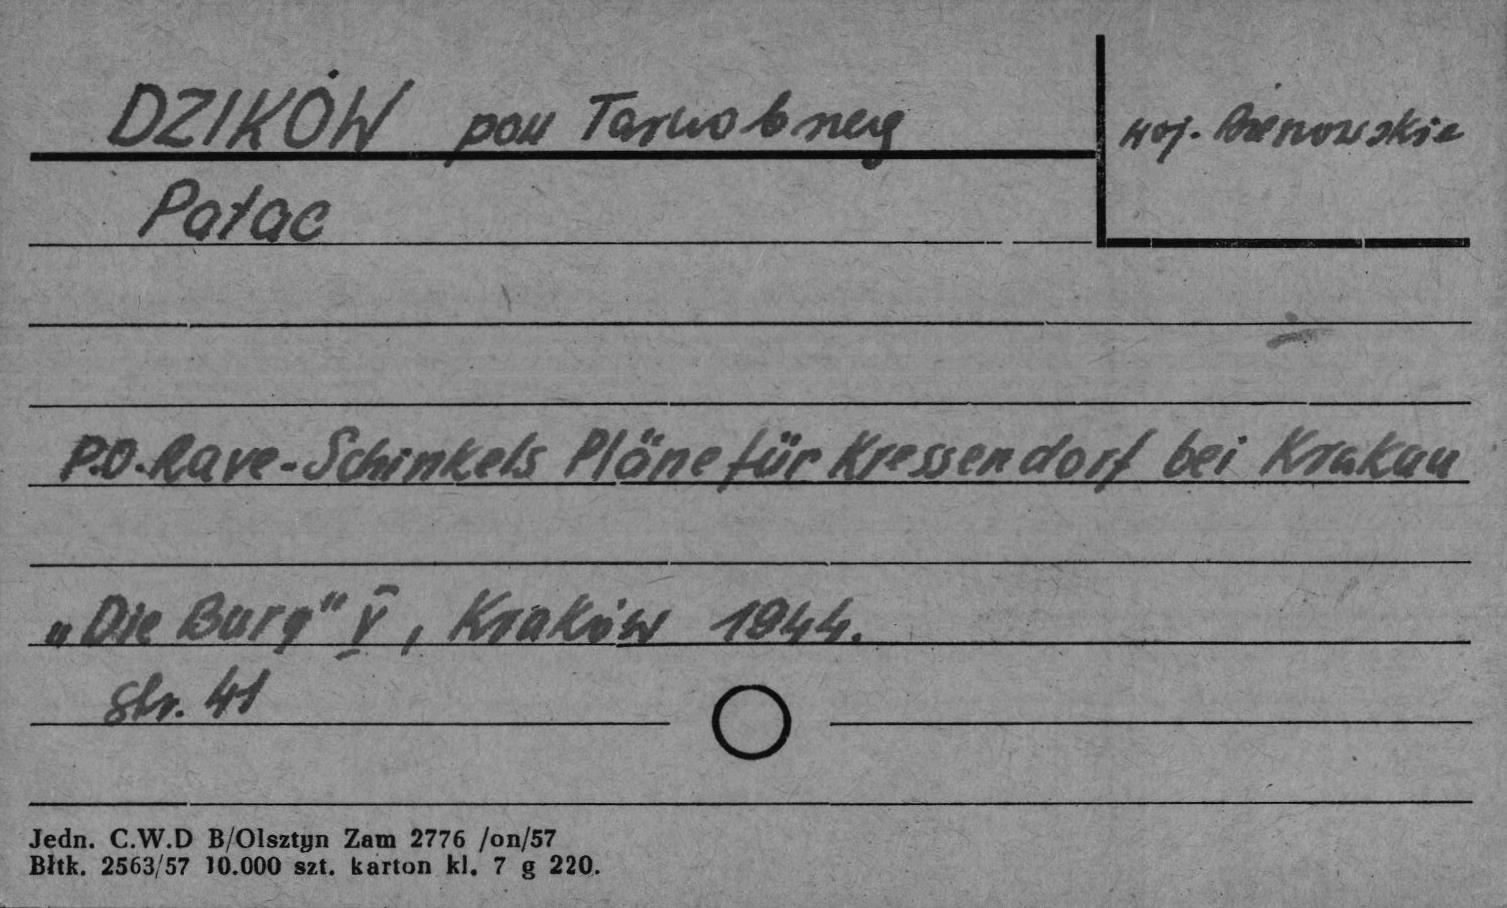 DZIKÓW pow Tarnobrzeg
woj. Rzeszowskie
Pałac
P.O. Rave - Schinkels Pläne für Kressendorf bei Krakau
„Die Burg" V, Kraków 1944.
Str. 41
Jedn. C.W.D B/Olsztyn Zam 2776 /on/57
Błtk. 2563/57 10.000 szt. karton kl. 7 g 220.